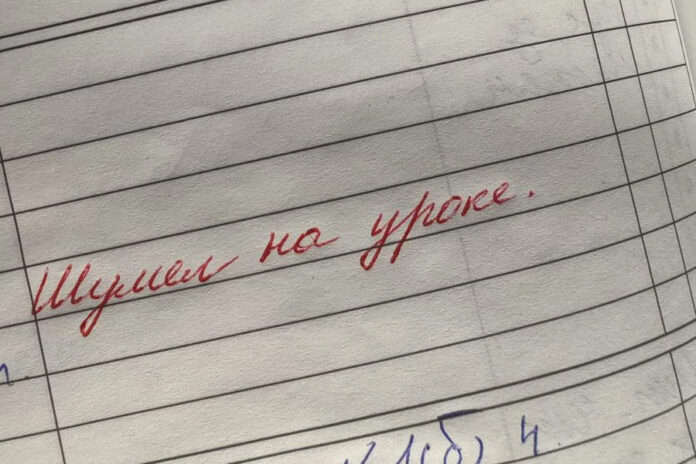 Шумел на уроке.